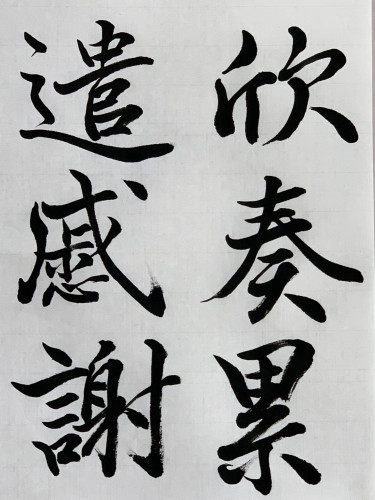 欣奏累
遣慼謝